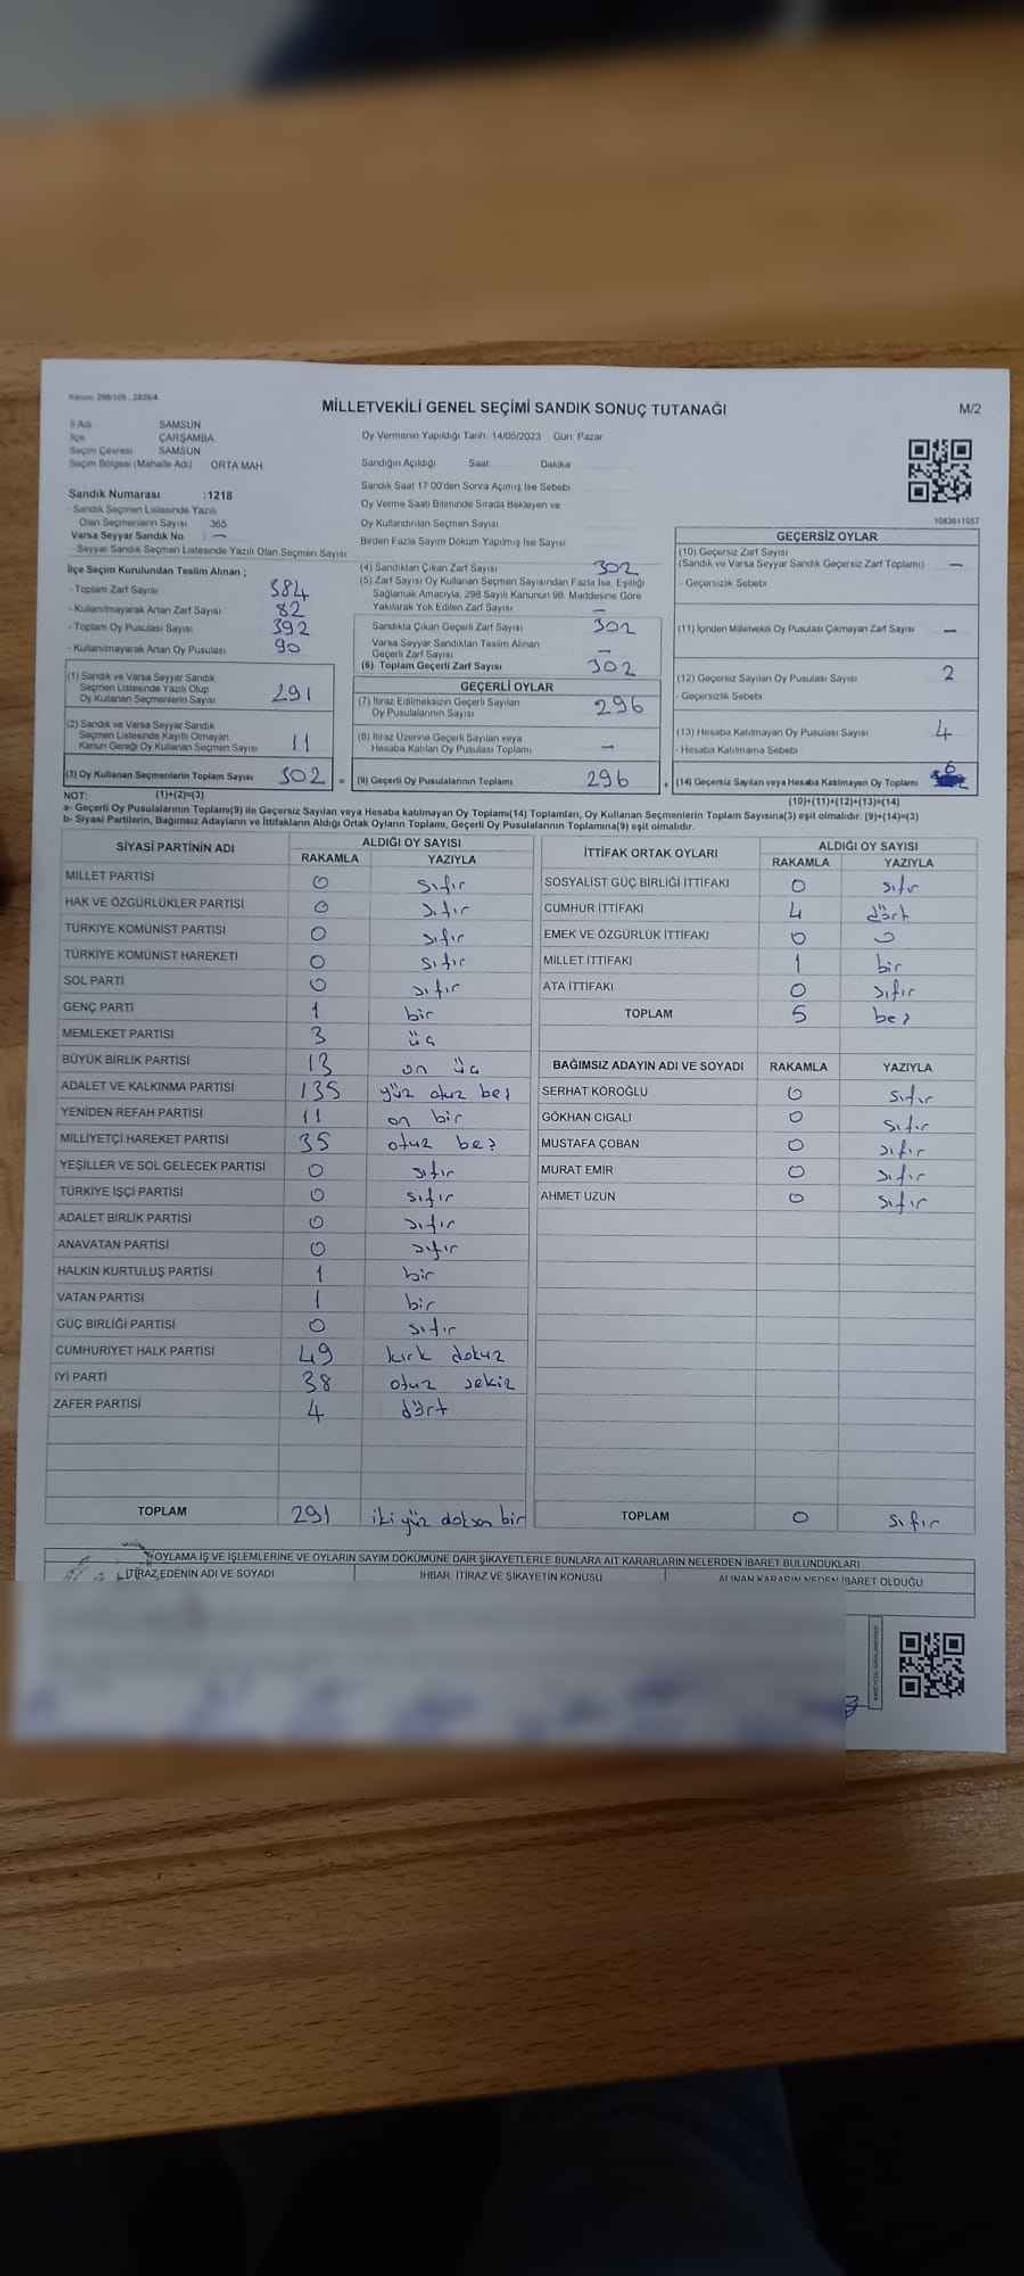 Kanun: 298/105, 2839/4
MİLLETVEKİLİ GENEL SEÇİMİ SANDIK SONUÇ TUTANAĞI
M/2
İl Adı SAMSUN
İlçe ÇARŞAMBA
Seçim Çevresi SAMSUN
Seçim Bölgesi (Mahalle Adı) ORTA MAH.
Sandık Numarası :1218
- Sandık Seçmen Listesinde Yazılı
Olan Seçmenlerin Sayısı 365
Varsa Seyyar Sandık No : —
- Seyyar Sandık Seçmen Listesinde Yazılı Olan Seçmen Sayısı
Oy Vermenin Yapıldığı Tarih: 14/05/2023 Gün: Pazar
Sandığın Açıldığı Saat: Dakika
Sandık Saat 17:00'den Sonra Açılmış İse Sebebi
Oy Verme Saati Bitiminde Sırada Bekleyen ve
Oy Kullandırılan Seçmen Sayısı
Birden Fazla Sayım Döküm Yapılmış İse Sayısı
İlçe Seçim Kurulundan Teslim Alınan ;
- Toplam Zarf Sayısı 384
- Kullanılmayarak Artan Zarf Sayısı 82
- Toplam Oy Pusulası Sayısı 392
- Kullanılmayarak Artan Oy Pusulası 90
(1) Sandık ve Varsa Seyyar Sandık
Seçmen Listesinde Yazılı Olup
Oy Kullanan Seçmenlerin Sayısı 291
(2) Sandık ve Varsa Seyyar Sandık
Seçmen Listesinde Kayıtlı Olmayan
Kanun Gereği Oy Kullanan Seçmen Sayısı 11
(3) Oy Kullanan Seçmenlerin Toplam Sayısı 302 =
(4) Sandıktan Çıkan Zarf Sayısı 302
(5) Zarf Sayısı Oy Kullanan Seçmen Sayısından Fazla İse, Eşitliği
Sağlamak Amacıyla, 298 Sayılı Kanunun 98. Maddesine Göre
Yakılarak Yok Edilen Zarf Sayısı —
Sandıkta Çıkan Geçerli Zarf Sayısı 302
Varsa Seyyar Sandıktan Teslim Alınan
Geçerli Zarf Sayısı —
(6) Toplam Geçerli Zarf Sayısı 302
GEÇERLİ OYLAR
(7) İtiraz Edilmeksizin Geçerli Sayılan
Oy Pusulalarının Sayısı 296
(8) İtiraz Üzerine Geçerli Sayılan veya
Hesaba Katılan Oy Pusulası Toplamı —
(9) Geçerli Oy Pusulalarının Toplamı 296 +
1083611057
GEÇERSİZ OYLAR
(10) Geçersiz Zarf Sayısı
(Sandık ve Varsa Seyyar Sandık Geçersiz Zarf Toplamı) —
- Geçersizlik Sebebi
(11) İçinden Milletvekili Oy Pusulası Çıkmayan Zarf Sayısı —
(12) Geçersiz Sayılan Oy Pusulası Sayısı 2
- Geçersizlik Sebebi
(13) Hesaba Katılmayan Oy Pusulası Sayısı 4
- Hesaba Katılmama Sebebi
(14) Geçersiz Sayılan veya Hesaba Katılmayan Oy Toplamı 6
NOT: (1)+(2)=(3)
(10)+(11)+(12)+(13)=(14)
a- Geçerli Oy Pusulalarının Toplamı(9) ile Geçersiz Sayılan veya Hesaba katılmayan Oy Toplamı(14) Toplamları, Oy Kullanan Seçmenlerin Toplam Sayısına(3) eşit olmalıdır. (9)+(14)=(3)
b- Siyasi Partilerin, Bağımsız Adayların ve İttifakların Aldığı Ortak Oyların Toplamı, Geçerli Oy Pusulalarının Toplamına(9) eşit olmalıdır.
SİYASİ PARTİNİN ADI ALDIĞI OY SAYISI
RAKAMLA YAZIYLA
MİLLET PARTİSİ 0 sıfır
HAK VE ÖZGÜRLÜKLER PARTİSİ 0 sıfır
TÜRKİYE KOMÜNİST PARTİSİ 0 sıfır
TÜRKİYE KOMÜNİST HAREKETİ 0 sıfır
SOL PARTİ 0 sıfır
GENÇ PARTİ 1 bir
MEMLEKET PARTİSİ 3 üç
BÜYÜK BİRLİK PARTİSİ 13 on üç
ADALET VE KALKINMA PARTİSİ 135 yüz otuz beş
YENİDEN REFAH PARTİSİ 11 on bir
MİLLİYETÇİ HAREKET PARTİSİ 35 otuz beş
YEŞİLLER VE SOL GELECEK PARTİSİ 0 sıfır
TÜRKİYE İŞÇİ PARTİSİ 0 sıfır
ADALET BİRLİK PARTİSİ 0 sıfır
ANAVATAN PARTİSİ 0 sıfır
HALKIN KURTULUŞ PARTİSİ 1 bir
VATAN PARTİSİ 1 bir
GÜÇ BİRLİĞİ PARTİSİ 0 sıfır
CUMHURİYET HALK PARTİSİ 49 kırk dokuz
İYİ PARTİ 38 otuz sekiz
ZAFER PARTİSİ 4 dört
TOPLAM 291 iki yüz doksan bir
İTTİFAK ORTAK OYLARI ALDIĞI OY SAYISI
RAKAMLA YAZIYLA
SOSYALİST GÜÇ BİRLİĞİ İTTİFAKI 0 sıfır
CUMHUR İTTİFAKI 4 dört
EMEK VE ÖZGÜRLÜK İTTİFAKI 0 0
MİLLET İTTİFAKI 1 bir
ATA İTTİFAKI 0 sıfır
TOPLAM 5 beş
BAĞIMSIZ ADAYIN ADI VE SOYADI RAKAMLA YAZIYLA
SERHAT KÖROĞLU 0 sıfır
GÖKHAN CIGALI 0 sıfır
MUSTAFA ÇOBAN 0 sıfır
MURAT EMİR 0 sıfır
AHMET UZUN 0 sıfır
TOPLAM 0 sıfır
OYLAMA İŞ VE İŞLEMLERİNE VE OYLARIN SAYIM DÖKÜMÜNE DAİR ŞİKAYETLERLE BUNLARA AİT KARARLARIN NELERDEN İBARET BULUNDUKLARI
İTİRAZ EDENİN ADI VE SOYADI İHBAR, İTİRAZ VE ŞİKAYETİN KONUSU ALINAN KARARIN NEDEN İBARET OLDUĞU